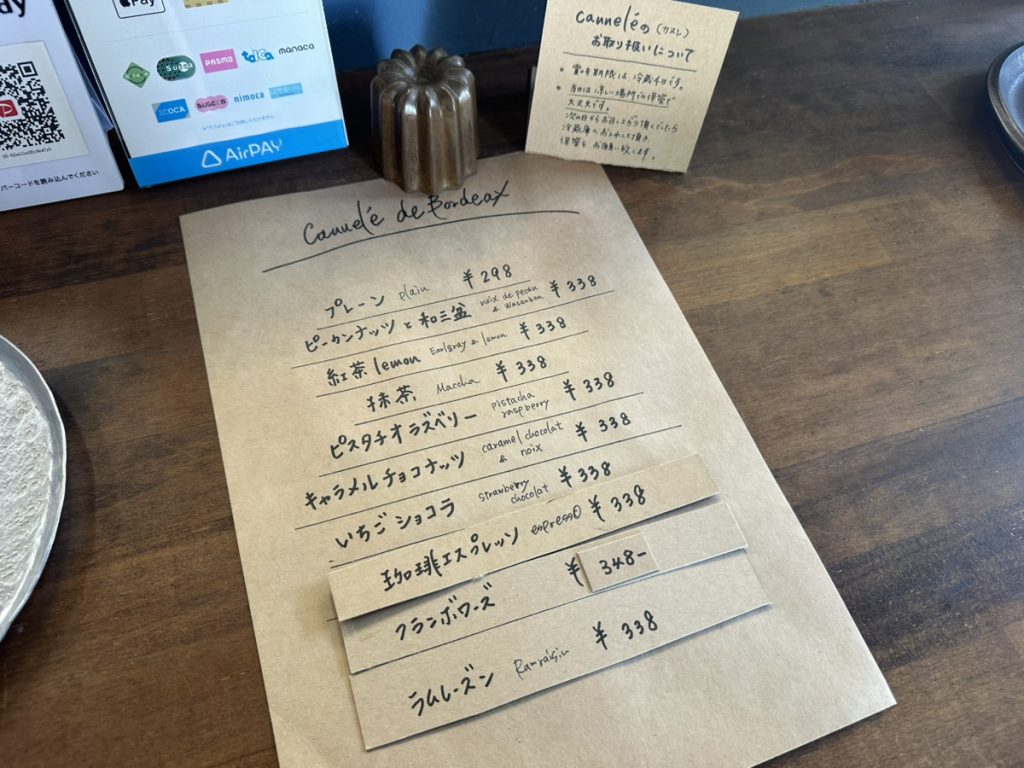 Pay
Pay
Suica
PASMO
toica
manaca
ICOCA
SUGOCA
nimoca
AirPAY
バーコードを読み込んでください
cannelé の (カヌレ)
お取り扱いについて
• 賞味期限は、冷蔵4日です。
• 当日は涼しい場所での保管で
大丈夫です。
次の日からお召し上がり頂く
冷蔵庫へお入れして頂き
保管をお願い致します。
Cannelé de Bordeax
プレーン plain ¥298
ピーカンナッツと和三盆 noix de pecan & Wasanbon ¥338
紅茶 lemon Earlgray & lemon ¥338
抹茶 Maccha ¥338
ピスタチオラズベリー pistacha raspberry ¥338
キャラメルチョコナッツ caramel chocolat & noix ¥338
いちごショコラ strawberry chocolat ¥338
珈琲エスプレッソ espresso ¥338
フランボワーズ ¥348-
ラムレーズン Ramraisin ¥338